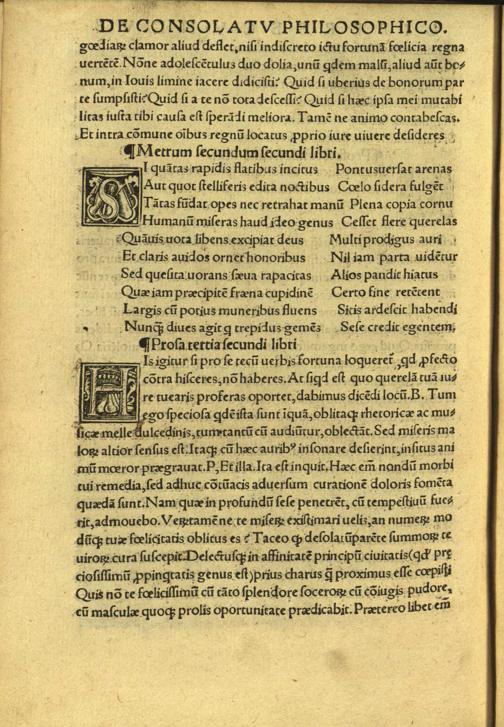 DE CONSOLATV PHILOSOPHICO.
gœdiaꝝ clamor aliud deflet, nisi indiscreto ictu fortunā fœlicia regna
uertētē. Nōne adolescētulus duo dolia, unū qdem malū, aliud aūt bo-
num, in Iouis limine iacere didicisti? Quid si uberius de bonorum par
te sumpsisti? Quid si a te nō tota descessi? Quid si hæc ipsa mei mutabi
litas iusta tibi causa est sperādi meliora. Tamē ne animo contabescas.
Et intra cōmune oībus regnū locatus ꝓprio iure uiuere desideres
¶Metrum secundum secundi libri.
SI quātas rapidis flatibus incitus Pontus uersat arenas
Aut quot stelliferis edita noctibus Cœlo sidera fulgēt
Tātas fūdat opes nec retrahat manū Plena copia cornu
Humanū miseras haud ideo genus Cesset flere querelas
Quāuis uota libens excipiat deus Multi prodigus auri
Et claris auidos ornet honoribus Nil iam parta uidētur
Sed quesita uorans sæua rapacitas Alios pandit hiatus
Quæ iam præcipitē fræna cupidinē Certo fine retētent
Largis cū potius muneribus fluens Sitis ardescit habendi
Nunꝗ̄ diues agit q trepidus gemēs Sese credit egentem,
¶Prosa tertia secundi libti
HIs igitur si pro se tecū uerbis fortuna loqueret̄, qd ꝓfecto
cōtra hisceres, nō haberes. At siqd est quo querelā tuā iu-
re tuearis proferas oportet, dabimus dicēdi locū. B. Tum
ego speciosa qdē ista sunt iquā, oblitaꝗ rhetoricæ ac mu-
sicæ melle dulcedinis, tum tantū cū audiūtur, oblectāt. Sed miseris ma
loꝝ altior sensus est. Itaꝗ cū hæc auribꝰ insonare desierint, insitus ani
mū mœror prægrauat. P, Et illa. Ita est inquit. Hæc em̄ nondū morbi
tui remedia, sed adhuc cōtūacis aduersum curationē doloris fomēta
quædā sunt. Nam quæ in profundū sese penetrēt, cū tempestiuū fue-
rit, admouebo. Veꝝtamē ne te miseꝝ existimari uelis, an numeꝝ mo
dūꝗ tuæ fœlicitatis oblitus es? Taceo ꝗ desolatū parēte summoꝝ te
uiroꝝ cura suscepit. Delectusꝗ in affinitatē principū ciuitatis (qd prę
ciosissimū ꝓpinqtatis genus est) prius charus ꝗ̄ proximus esse cœpisti
Quis nō te fœlicissimū cū tāto splendore soceroꝝ cū cōiugis pudore,
cū masculæ quoꝗ prolis oportunitate prædicabit. Prætereo libet em̄